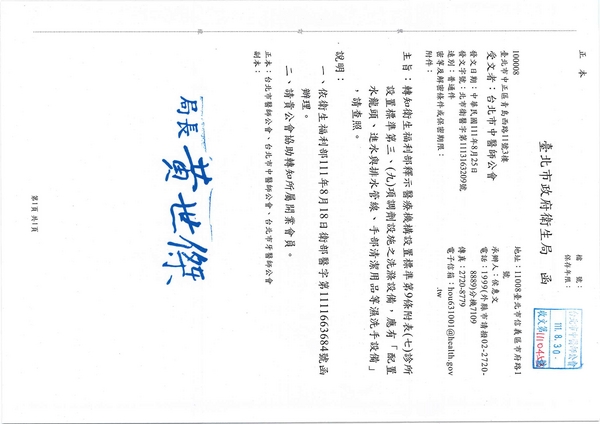 正本
檔　號：
保存年限：
臺北市政府衛生局　函
100008
臺北市中正區青島西路11號3樓
地址：11008臺北市信義區市府路1
號
承辦人：侯惠文
電話：1999(外縣市請撥02-2720-
8889)分機7109
傳真：2720-8779
電子信箱：hou631001@health.gov
.tw
受文者：台北市中醫師公會
發文日期：中華民國111年8月25日
發文字號：北市衛醫字第1113163209號
速別：普通件
密等及解密條件或保密期限：
附件：
主旨：轉知衛生福利部釋示醫療機構設置標準第9條附表(七)診所
設置標準第三、(九)項調劑設施之洗滌設備，應有「配置
水龍頭、進水與排水管線、手部清潔用品等濕洗手設備」
，請查照。
說明：
一、依衛生福利部111年8月18日衛部醫字第1111663684號函
辦理。
二、請貴公會協助轉知所屬開業會員。
正本：台北市醫師公會、台北市中醫師公會、台北市牙醫師公會
副本：
局長 黃世傑
第1頁 共1頁
台北市中醫師公會
111. 8. 30.
收文第